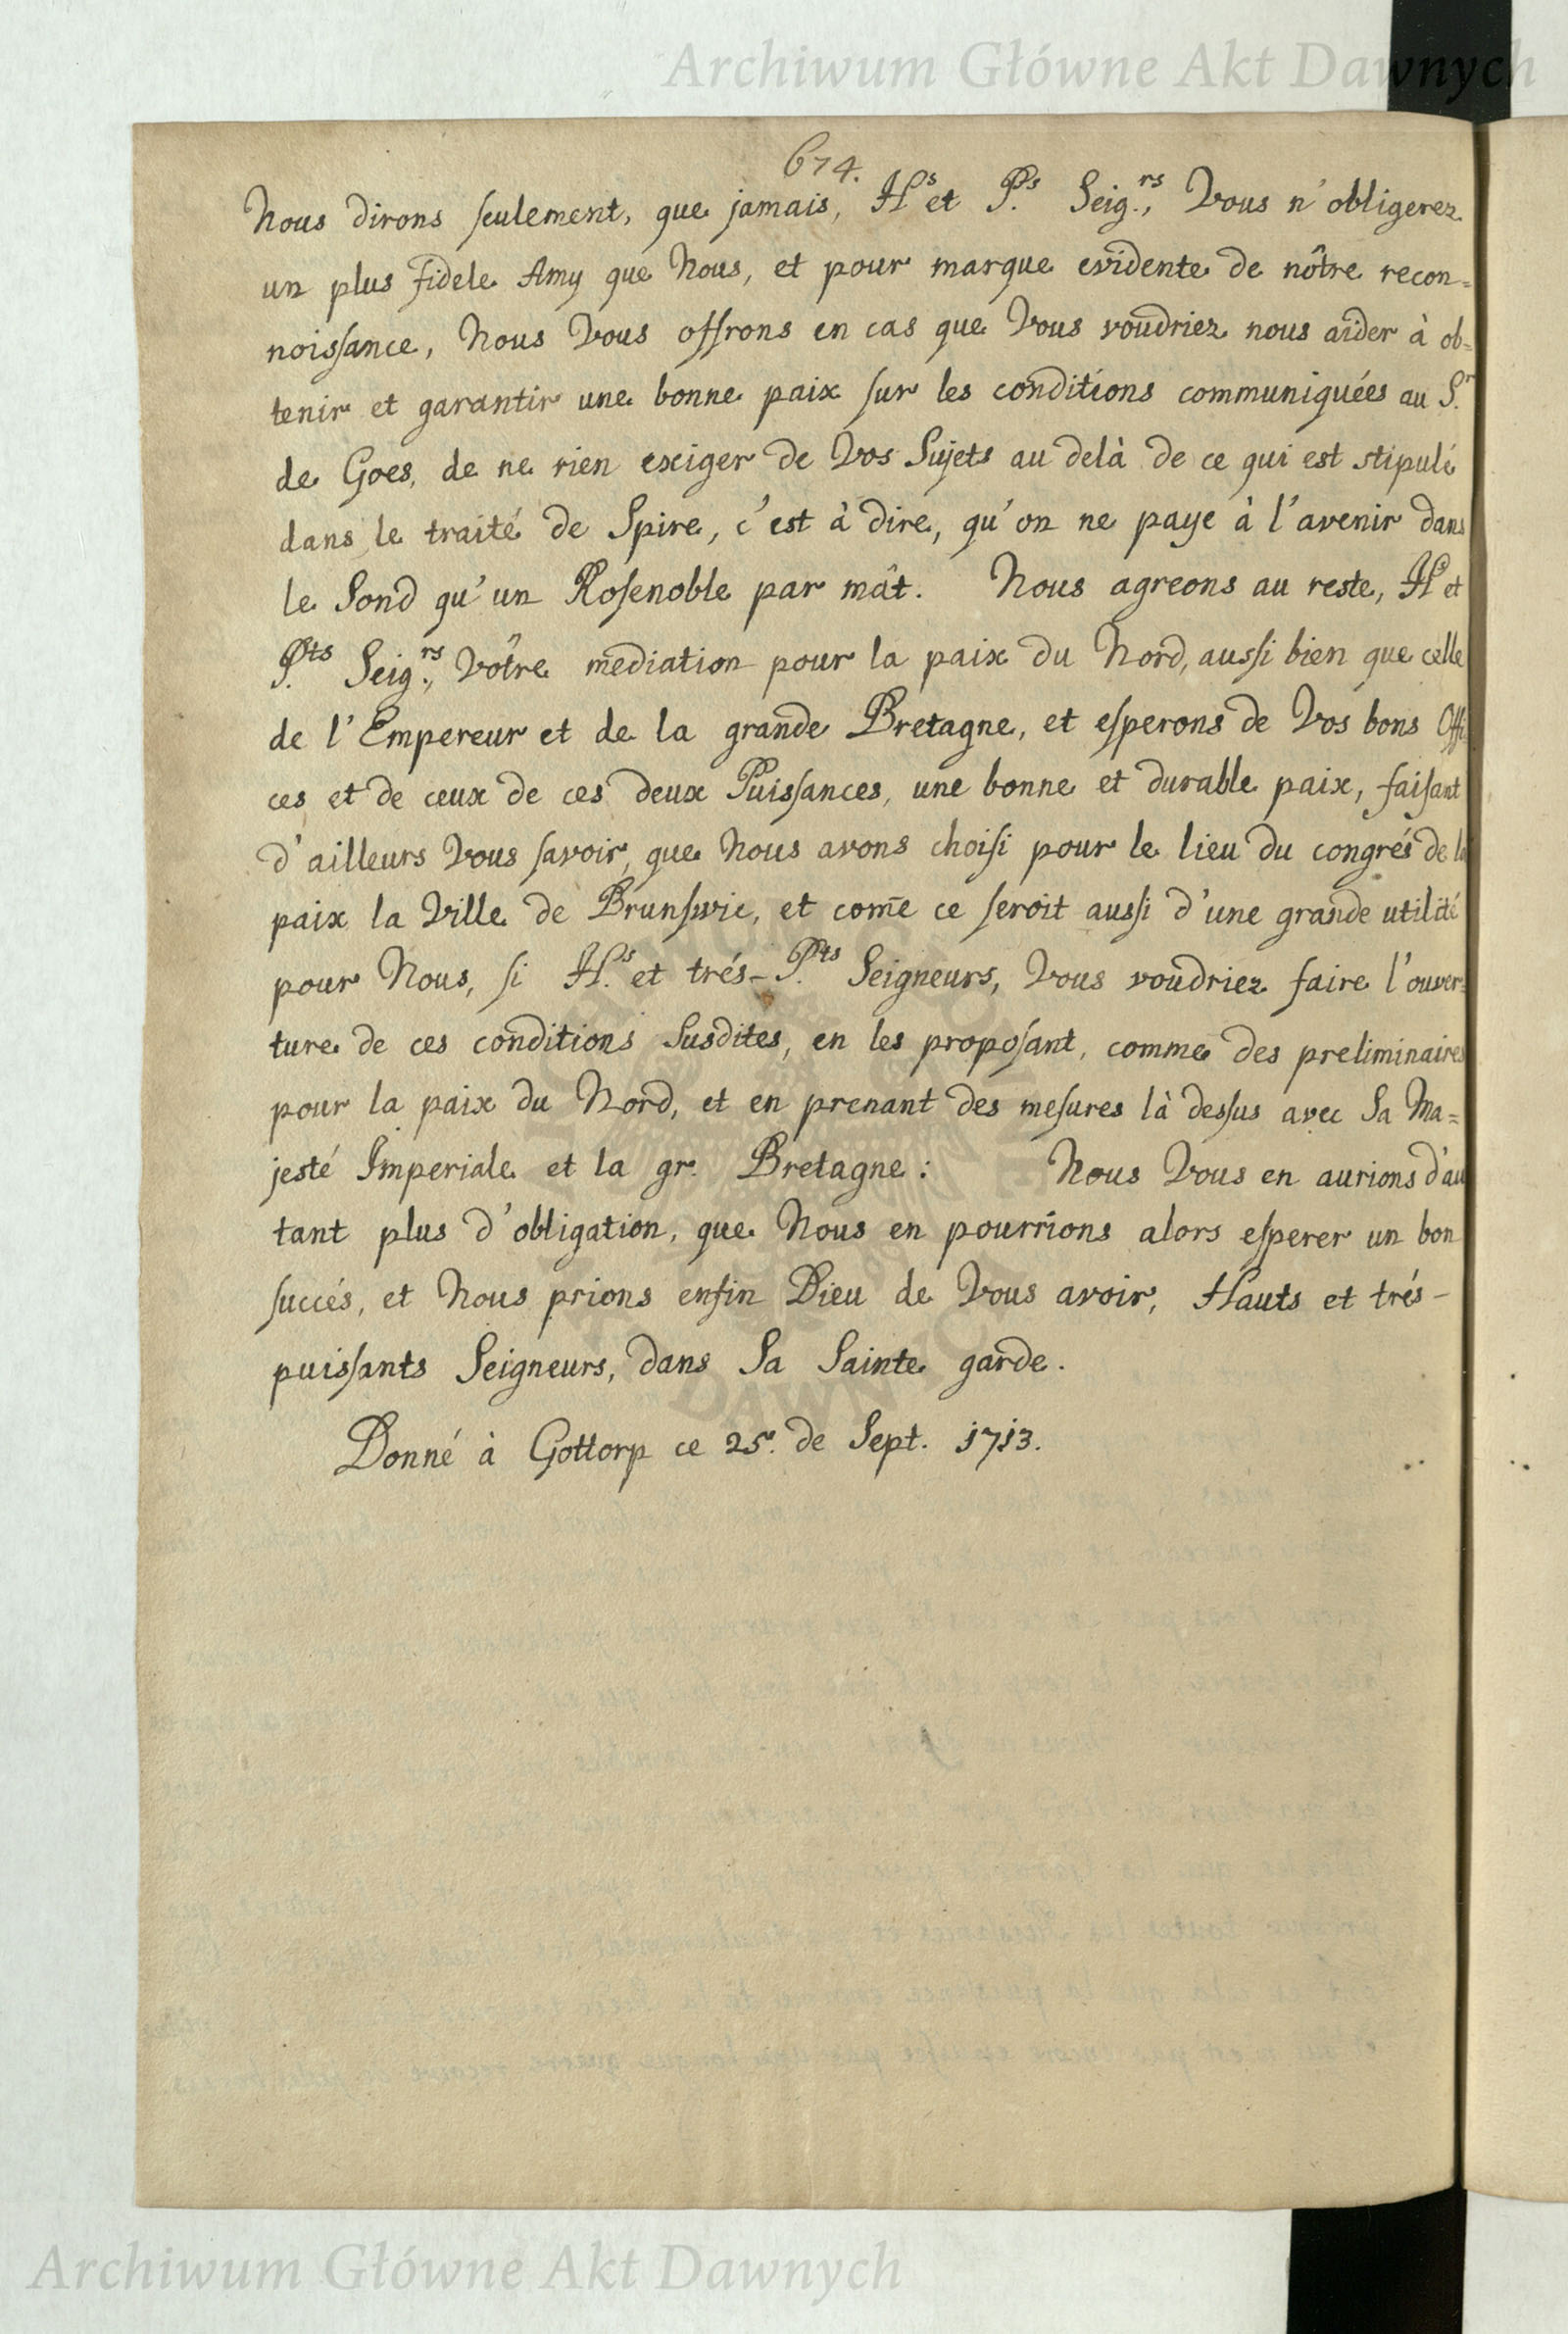 Archiwum Główne Akt Dawnych
674.
Nous dirons seulement, que jamais, H.s et P.s Seig.rs, Vous n'obligerez
un plus fidele Amy que Nous, et pour marque evidente de nôtre recon=
noissance, Nous Vous offrons en cas que Vous voudriez nous aider à ob=
tenir et garantir une bonne paix sur les conditions communiquées au S.r
de Goes, de ne rien exiger de Vos Sujets au delà de ce qui est stipulé
dans le traité de Spire, c'est à dire, qu'on ne paye à l'avenir dans
le Sond qu'un Rosenoble par mât. Nous agreons au reste, H.s et
P.ts Seig.rs, Vôtre mediation pour la paix du Nord, aussi bien que celle
de l'Empereur et de la grande Bretagne, et esperons de Vos bons Offi
ces et de ceux de ces deux Puissances, une bonne et durable paix, faisant
d'ailleurs Vous savoir, que Nous avons choisi pour le lieu du congrés de la
paix la Ville de Brunswic, et com̄e ce seroit aussi d'une grande utilité
pour Nous, si H.s et trés-P.ts Seigneurs, Vous voudriez faire l'ouver=
ture de ces conditions susdites, en les proposant, comme des preliminaires
pour la paix du Nord, et en prenant des mesures là dessus avec Sa Ma=
jesté Imperiale et la gr. Bretagne: Nous Vous en aurions d'au
tant plus d'obligation, que Nous en pourrions alors esperer un bon
succés, et Nous prions enfin Dieu de Vous avoir, Hauts et trés-
puissants Seigneurs, dans Sa Sainte garde.
Donné à Gottorp ce 25.e de Sept. 1713.
Archiwum Główne Akt Dawnych